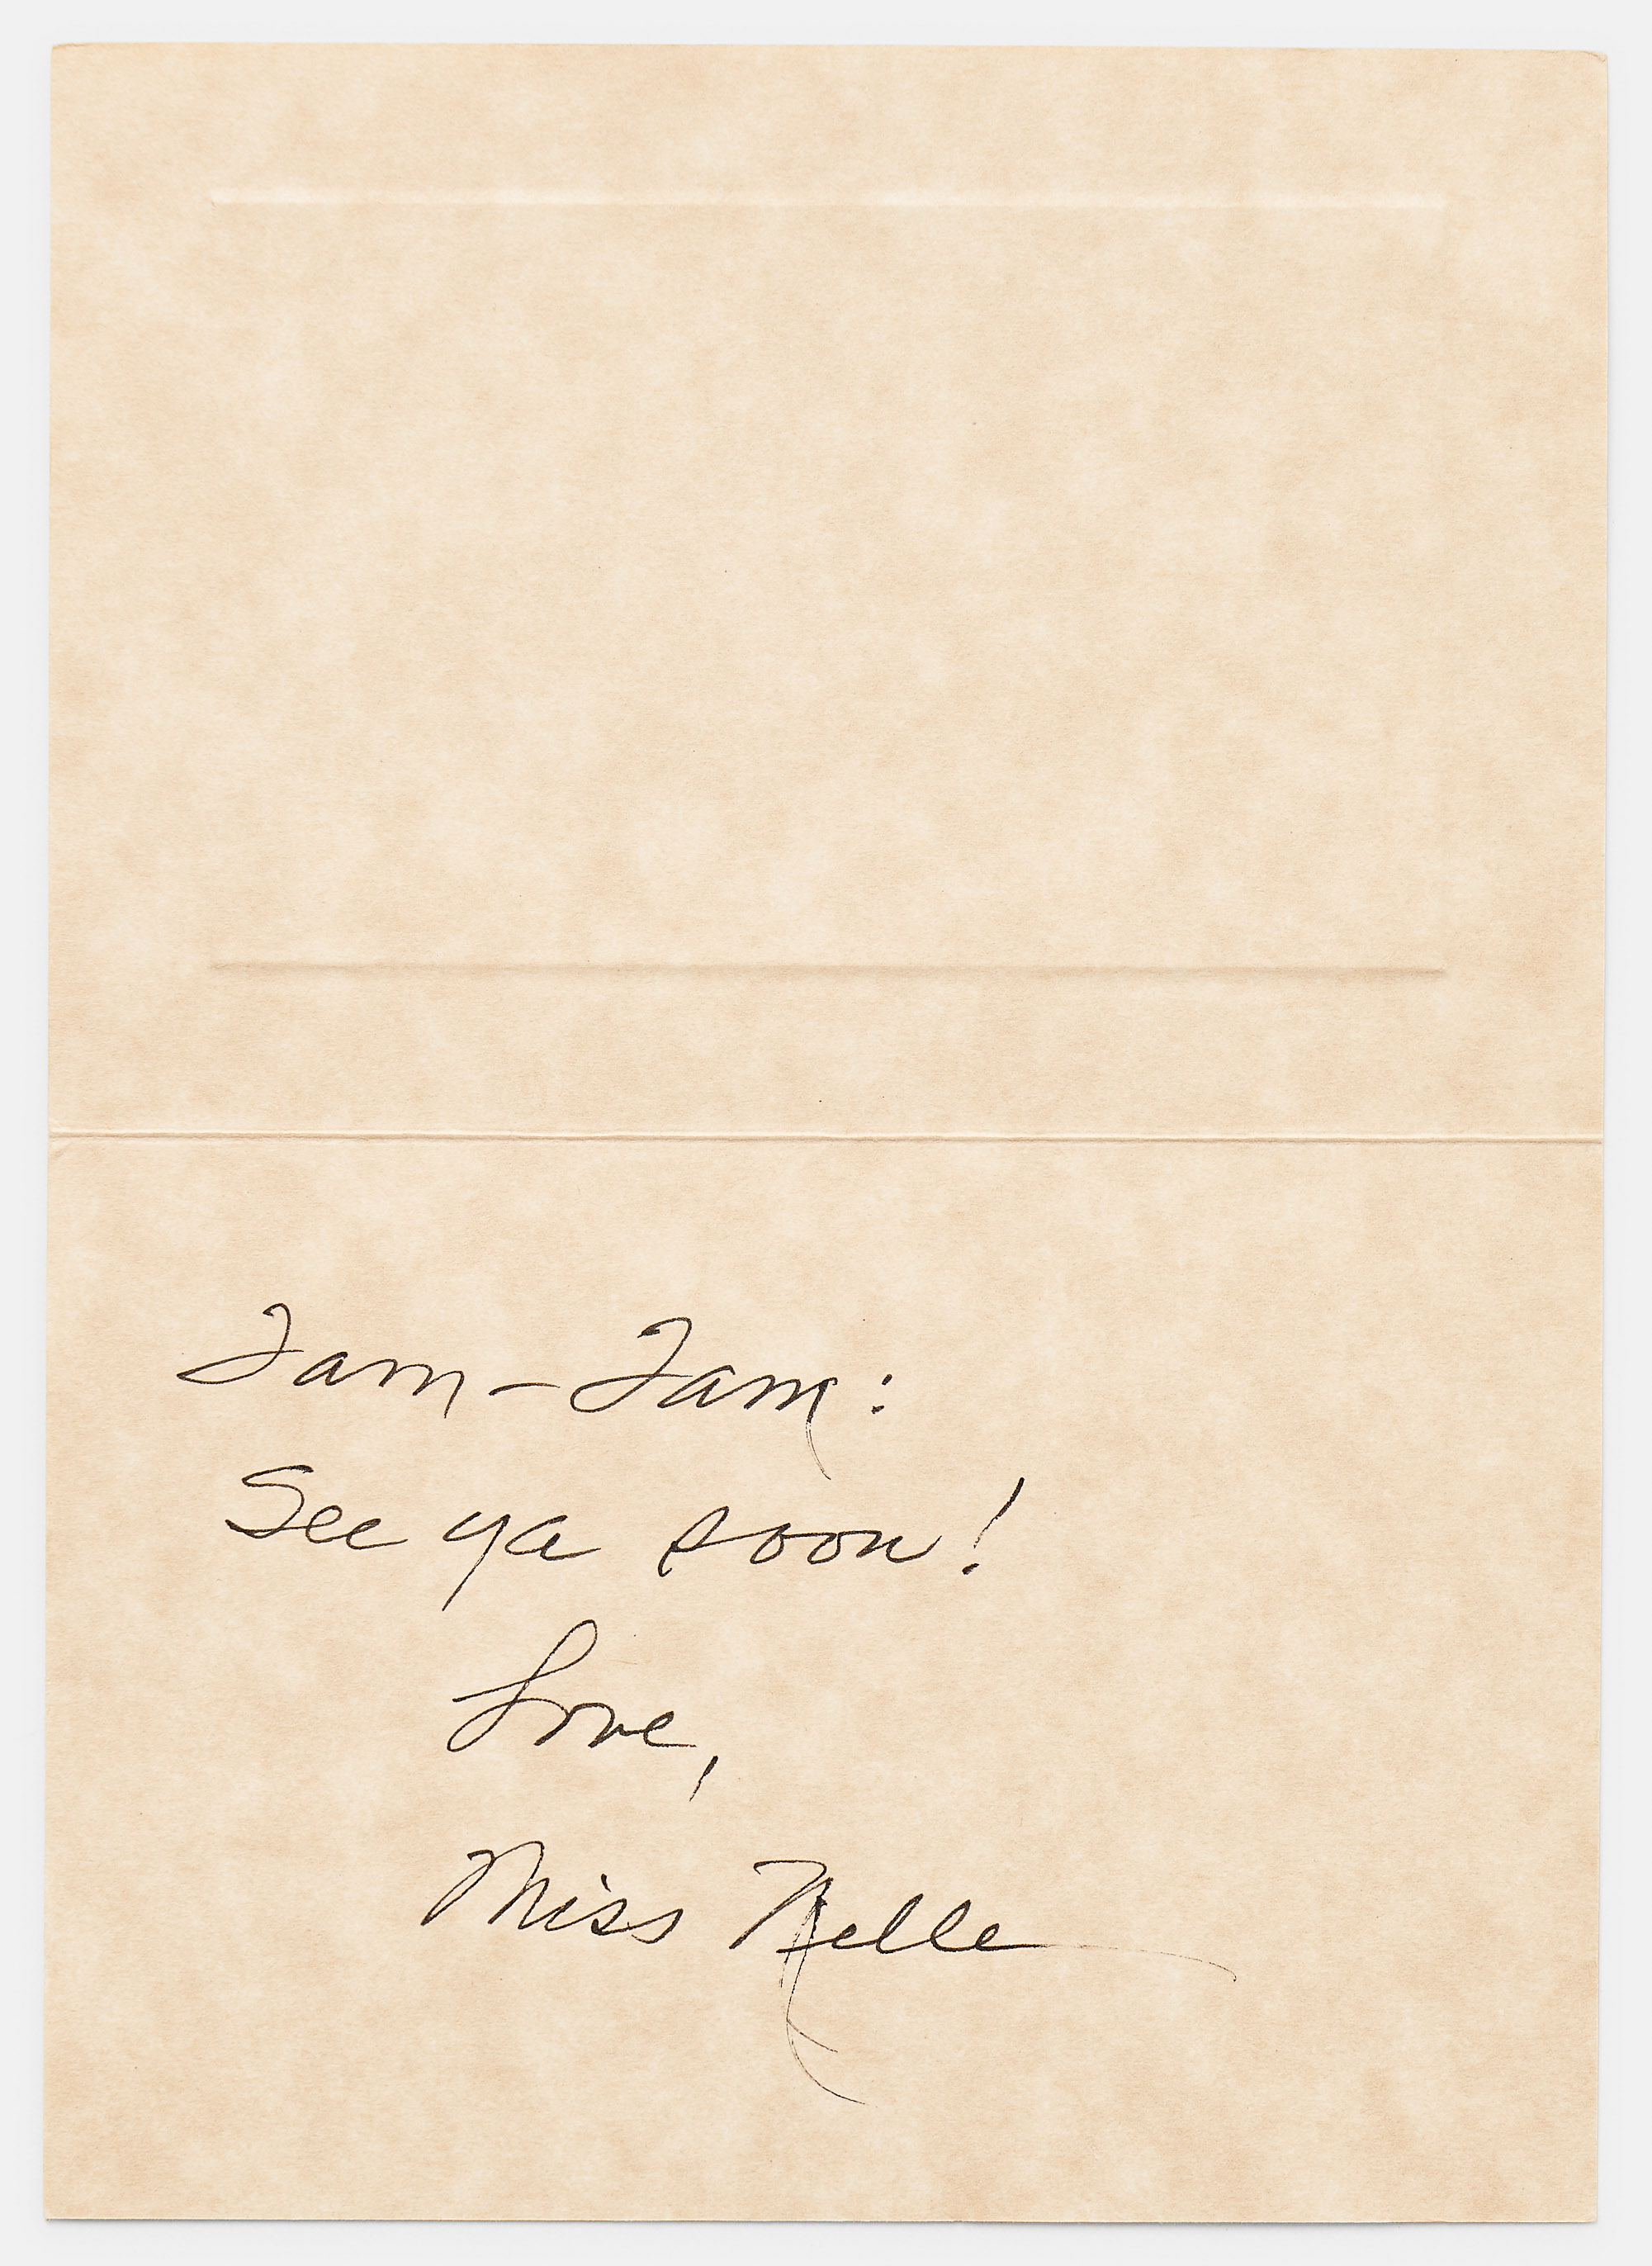 Tam-Tam:
See ya soon!
Love,
Miss Nelle